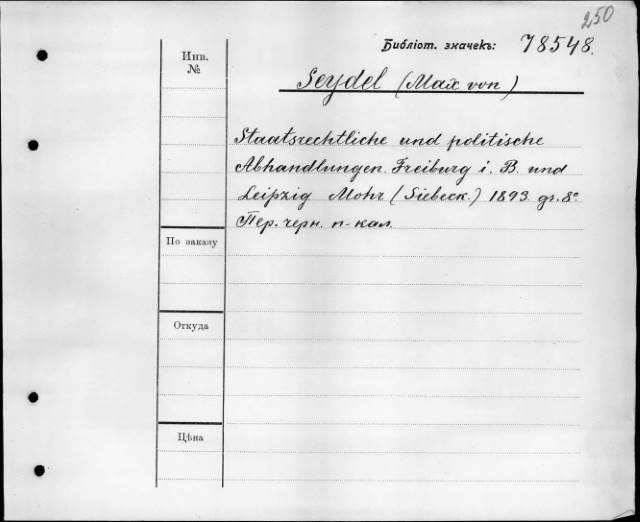 250
Библіот. значекъ: 78548.
Инв.
№
Seydel (Max von)
Staatsrechtliche und politische
Abhandlungen. Freiburg i. B. und
Leipzig Mohr (Siebeck.) 1893. gr. 8°.
Пер. черн. п-кал.
По заказу
Откуда
Цѣна